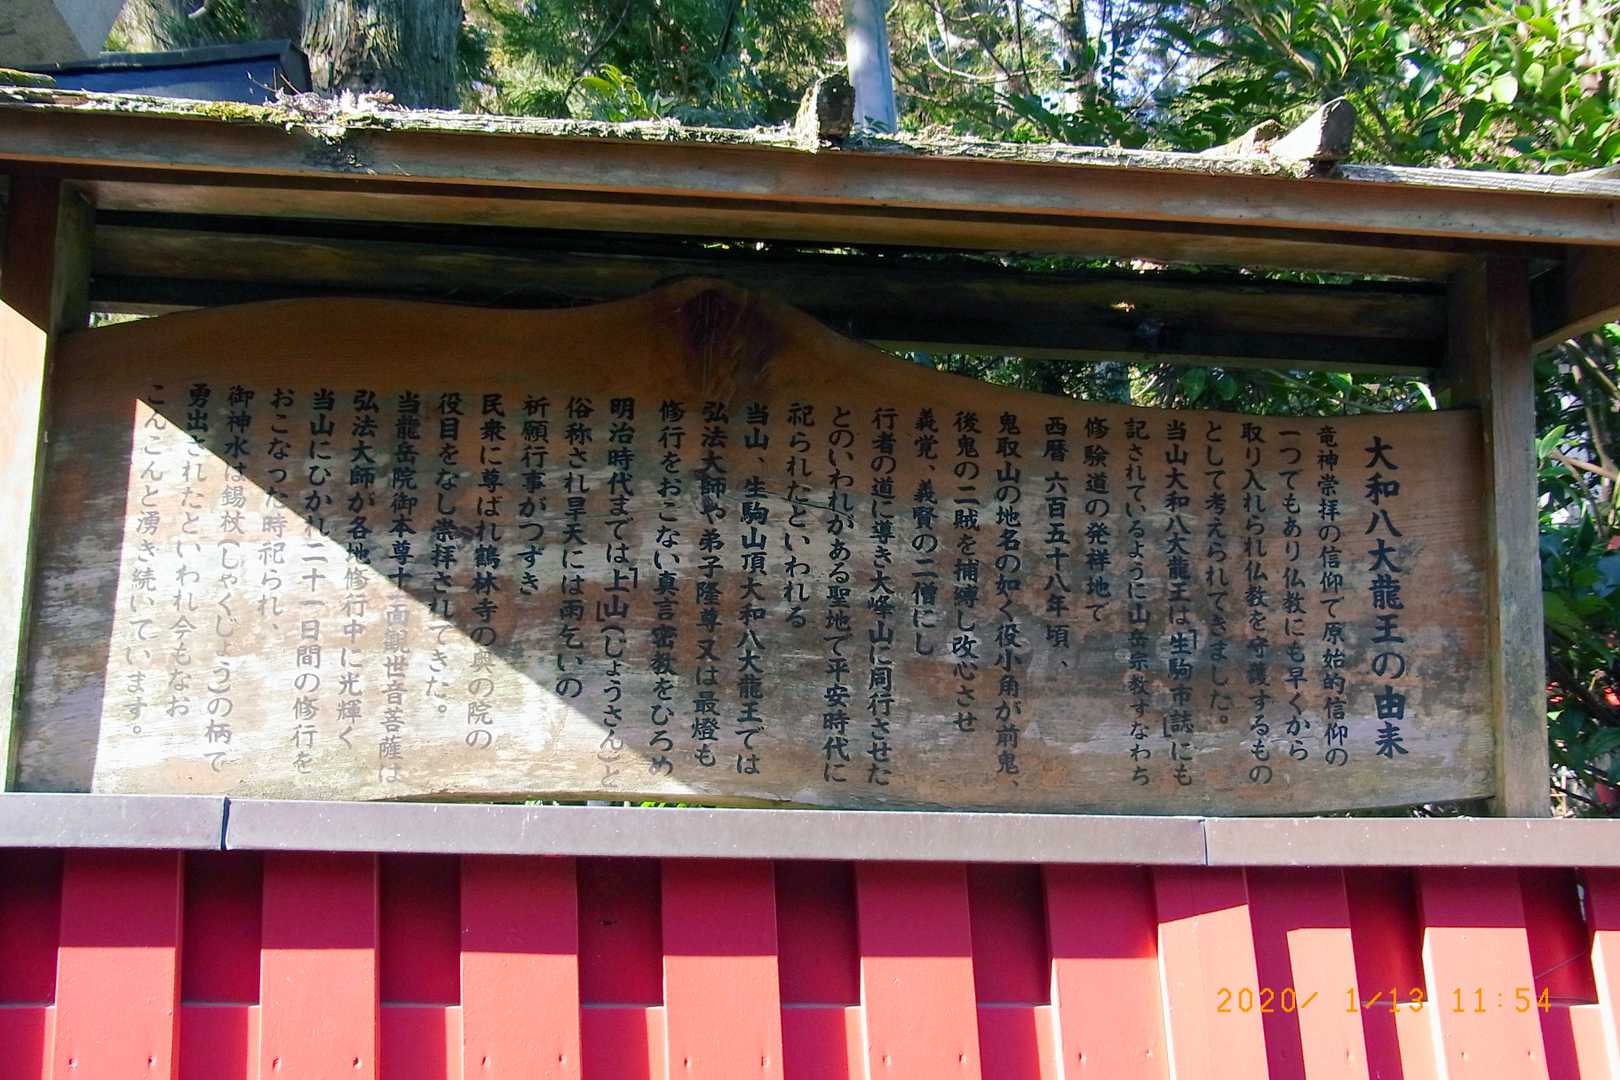 大和八大龍王の由来
竜神崇拝の信仰で原始的信仰の
一つでもあり仏教にも早くから
取り入れられ仏教を守護するもの
として考えられてきました。
当山大和八大龍王は「生駒市誌」にも
記されているように山岳宗教すなわち
修験道の発祥地で
西暦 六百五十八年頃、
鬼取山の地名の如く役小角が前鬼、
後鬼の二賊を捕縛し改心させ
義覚、義賢の二僧にし
行者の道に導き大峰山に同行させた
とのいわれがある聖地で平安時代に
祀られたといわれる
当山、生駒山頂大和八大龍王では
弘法大師や弟子隆尊又は最燈も
修行をおこない真言密教をひろめ
明治時代までは「上山」(じょうさん)と
俗称され旱天には雨乞いの
祈願行事がつずき
民衆に尊ばれ鶴林寺の奥の院の
役目をなし崇拝されてきた。
当龍岳院御本尊十一面観世音菩薩は
弘法大師が各地修行中に光輝く
当山にひかれ二十一日間の修行を
おこなった時祀られ、
御神水は錫杖(しゃくじょう)の柄で
勇出されたといわれ今もなお
こんこんと湧き続いています。
2020/ 1/13 11:54